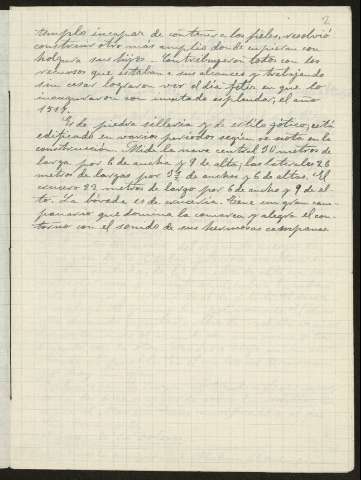 2
templo incapaz de contener a los fieles, resolvió
construir otro más amplio donde cupieran con
holgura sus hijos. Contribuyeron todos con los
recursos que estaban a sus alcances y trabajando
sin cesar lograron ver el día feliz en que lo
inauguraron con inusitado esplendor, el año
Es de piedra sillería y de estilo gótico; está
edificado en varios periodos según se nota en la
construcción. Mide la nave central 30 metros de
larga por 6 de ancha y 9 de alta; las laterales 26
metros de largas por 3½ de anchas y 6 de altas. El
crucero 22 metros de largo por 6 de ancho y 9 de al-
to. La bóveda es de crucería. Tiene un gran cam-
panario que domina la comarca y alegra el con-
torno con el sonido de sus hermosas campanas